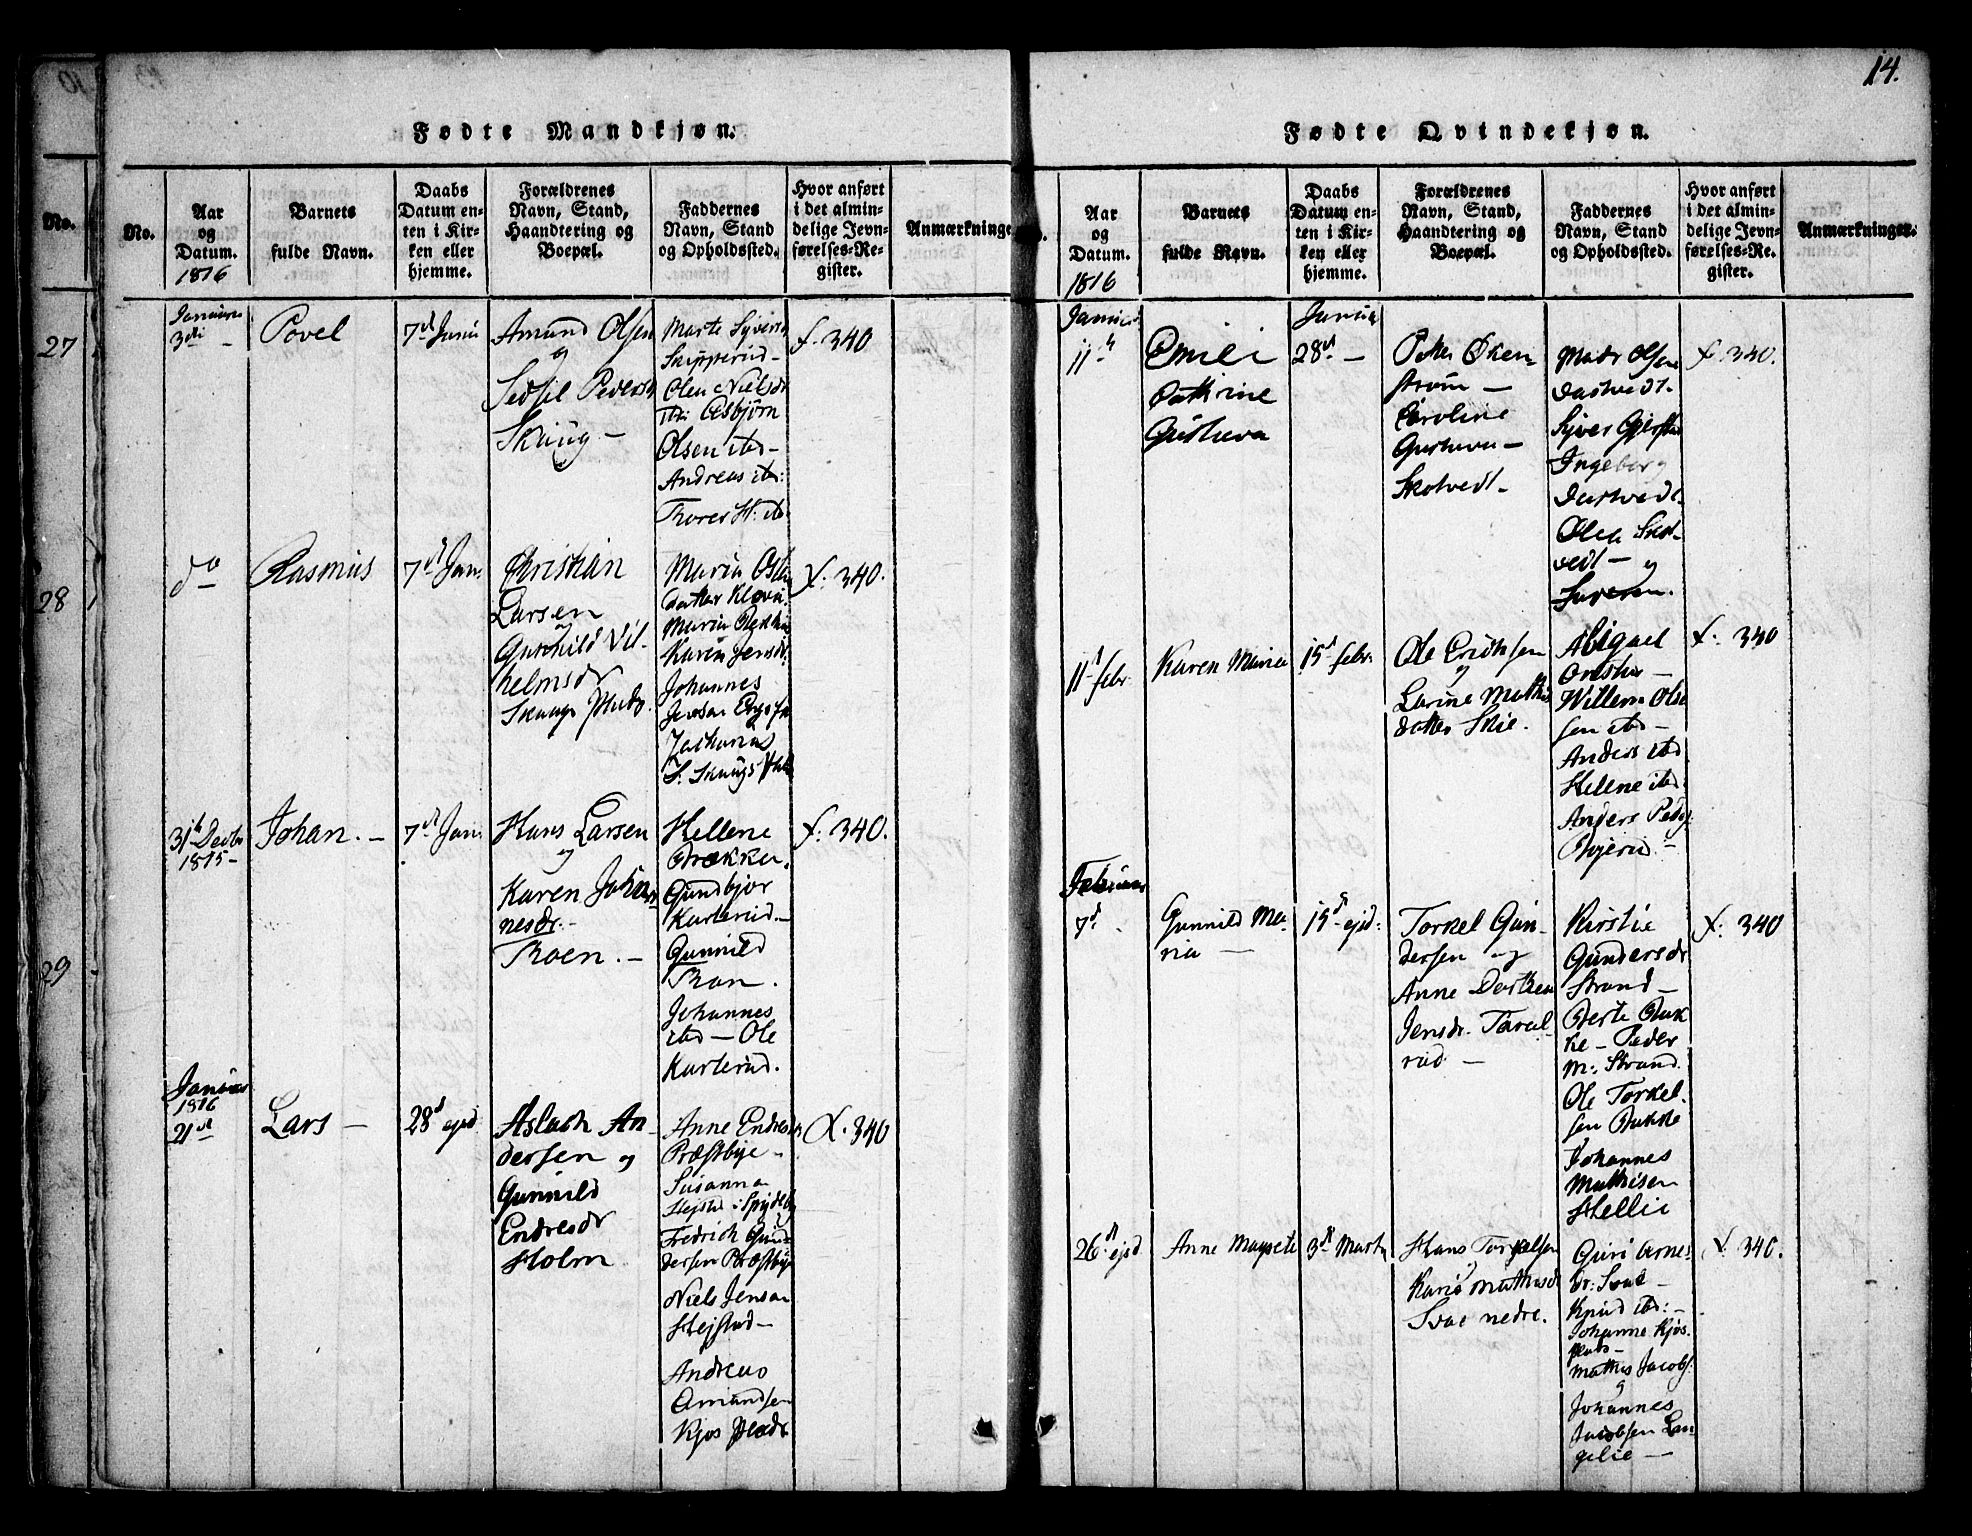 14.
Fødte Mandkjøn.
No.
Aar
og
Datum.
1816
Barnets
fulde Navn.
Daabs
Datum en-
ten i Kir-
ken eller
hjemme.
Forældrenes
Navn, Stand,
Haandtering og
Boepæl.
Faddernes
Navn, Stand
og Opholdssted.
Hvor anført
i det almin-
delige Jevn-
førelses-Re-
gister.
Anmærkninger.
No.
27
28
29
Januar
3die
Povel
7d Janu
Amund Olsen
og
Pedersd
Skaug –
Marte Syvers
Skipperud –
Olea Nielsdr
Asbjørn
Olsen ibd –
Andreas ibd:
Thores H: ibd
f. 340
do
Rasmus
7d Jan.
Christian
Larsen
og
Gunhild Vil-
helmsdr
Skaugs Plads.
Maria Ols
datter
Maria
Karen Jensdr.
Johannes
Jensen
Zacharias
S. Skaugs
f. 340.
31te Decbr
1815 –
Johan. –
7d Jan.
Hans Larsen
og
Karen Johan-
nesdr. –
Moen. –
Hellene
Brække.
Gundbjør
Karterud –
Gunnild
Johannes
ibd – Ole
Karterud.
f. 340.
Januar
1816
21d
Lars –
28d ejsd
Aslach An-
dersen og
Gunnild
Endresdr
Holm
Anne Endresdr
Præstbye –
Susanna
Hejstad i Spydeb
Fredrich Gun-
dersen Præstbye
Niels Jensen
Hejstad –
Andreas
Amundsen
Kjos Plads
f. 340
Fødte Qvindekjøn.
Aar
og
Datum.
1816
Barnets
fulde Navn.
Daabs
Datum en-
ten i Kir-
ken eller
hjemme.
Forældrenes
Navn, Stand,
Haandtering og
Boepæl.
Faddernes
Navn, Stand
og Opholdssted.
Hvor anført
i det almin-
delige Jevn-
førelses-Re-
gister.
Anmærkninger.
Januar
11te
Emili
Cathrine
Gustava
Januar
28d –
Peter Øken-
strøm –
Caroline
Gustava –
Skotvedt –
Mads Olsen
Dastvedt.
Syver
Ingeborg
Dastvedt.
Olea Skot-
vedt – og
f. 340.
11te febr
Karen Maria
15d febr
Ole Erichsen
og
Larine Mathis
datter Skie.
Abigael
Willem Ole
sen ibd –
Anders ibd
Helene ibd.
Anders Peders
f. 340
Februar
7d
Gunnild Ma-
ria –
15d ejsd:
Torkel Gun-
dersen og
Anne Dorthea
Jensdr.
rud –
Kirstie
Gundersdr
Strand –
Berte Bak-
ke – Peder
M: Strand.
Ole Torkel-
sen Bakke
Johannes
Mathisen
Hellie
f. 340
26d ejsd
Anne Magrete
3d Marty
Hans Torkelsen
Karis Mathisdr
Svae nedre.
Guri Arnes-
dr: Svae –
Knud ibd: –
Johanne Kjos-
plads –
Mathis Jacobs.
og
Johannes
Jacobsen Lan-
gelie –
f. 340.